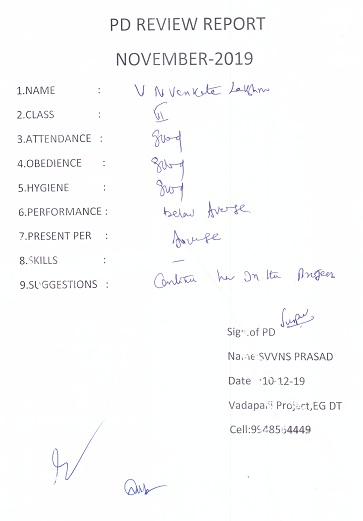 PD REVIEW REPORT
NOVEMBER-2019
1.NAME : V N Venkata Lakshmi
2.CLASS : VI
3.ATTENDANCE : Good
4.OBEDIENCE : Good
5.HYGIENE : Good
6.PERFORMANCE : below Average
7.PRESENT PER : Average
8.SKILLS : —
9.SUGGESTIONS : Continue her In the
Sign.of PD
Name SVVNS PRASAD
Date 10-12-19
Vadapalli Project,EG DT
Cell:9948564449